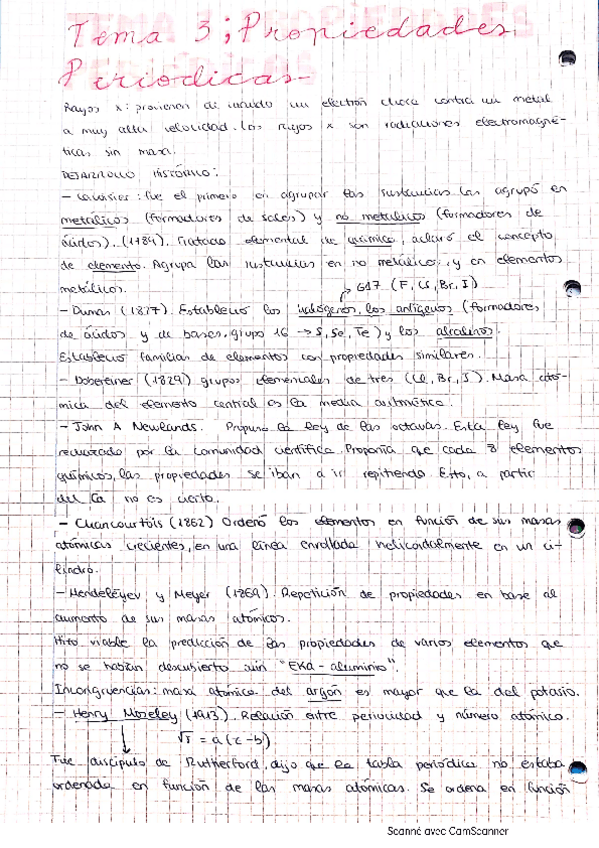 Tema 3; Propiedades
Periodicas-
Rayos x: provienen de cuando un electrón choca contra un metal
a muy alta velocidad. Los rayos x son radiaciones electromagné-
ticas, sin masa.
DESARROLLO HISTÓRICO:
- Lavoisier: fue el primero en agrupar las sustancias las agrupó en
metálicos (formadores de sales) y no metálicos (formadores de
ácidos). (1789). Tratado elemental de química, aclaró el concepto
de elemento. Agrupa las sustancias en no metálicos, y en elementos
metálicos.
G17 (F, Cl, Br, I)
- Dumas (1827). Estableció los halógenos, los anfígenos (formadores
de ácidos y de bases, grupo 16 → S, Se, Te) y los alcalinos.
Estableció familias de elementos con propiedades similares.
- Dobereiner (1829) grupos elementales de tres (Cl, Br, I). Masa ató-
mica del elemento central es la media aritmética.
- John A Newlands. Propuso la ley de las octavas. Esta ley fue
rechazada por la comunidad científica. Proponía que cada 8 elementos
químicos, las propiedades se iban a ir repitiendo. Esto, a partir
del Ca no es cierto.
- Chancourtois (1862) Ordenó los elementos en función de sus masas
atómicas crecientes, en una línea enrollada helicoidalmente en un ci-
lindro.
- Mendeleyev y Meyer (1869). Repetición de propiedades en base al
aumento de sus masas atómicas.
Hizo viable la predicción de las propiedades de varios elementos que
no se habían descubierto aún "EKA-aluminio".
Incongruencias: masa atómica del argón es mayor que la del potasio.
- Henry Moseley (1913). Relación entre periocidad y número atómico.
√f = a(z-b)
Fue discípulo de Rutherford, dijo que la tabla periódica no estaba
ordenada en función de las masas atómicas. Se ordena en función
Scanné avec CamScanner